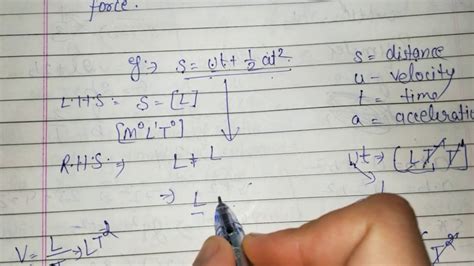 force.
eg:→ s = ut + 1/2 at²
s = distance
u - velocity
t = time
a = acceleratio
L.H.S = S = [L]
[M⁰L¹T⁰]
R.H.S. ⇒ L + L
ut ⇒ [L T⁻¹ T¹]
⇒ L
L
V = L ⇒ LT⁻²
T²